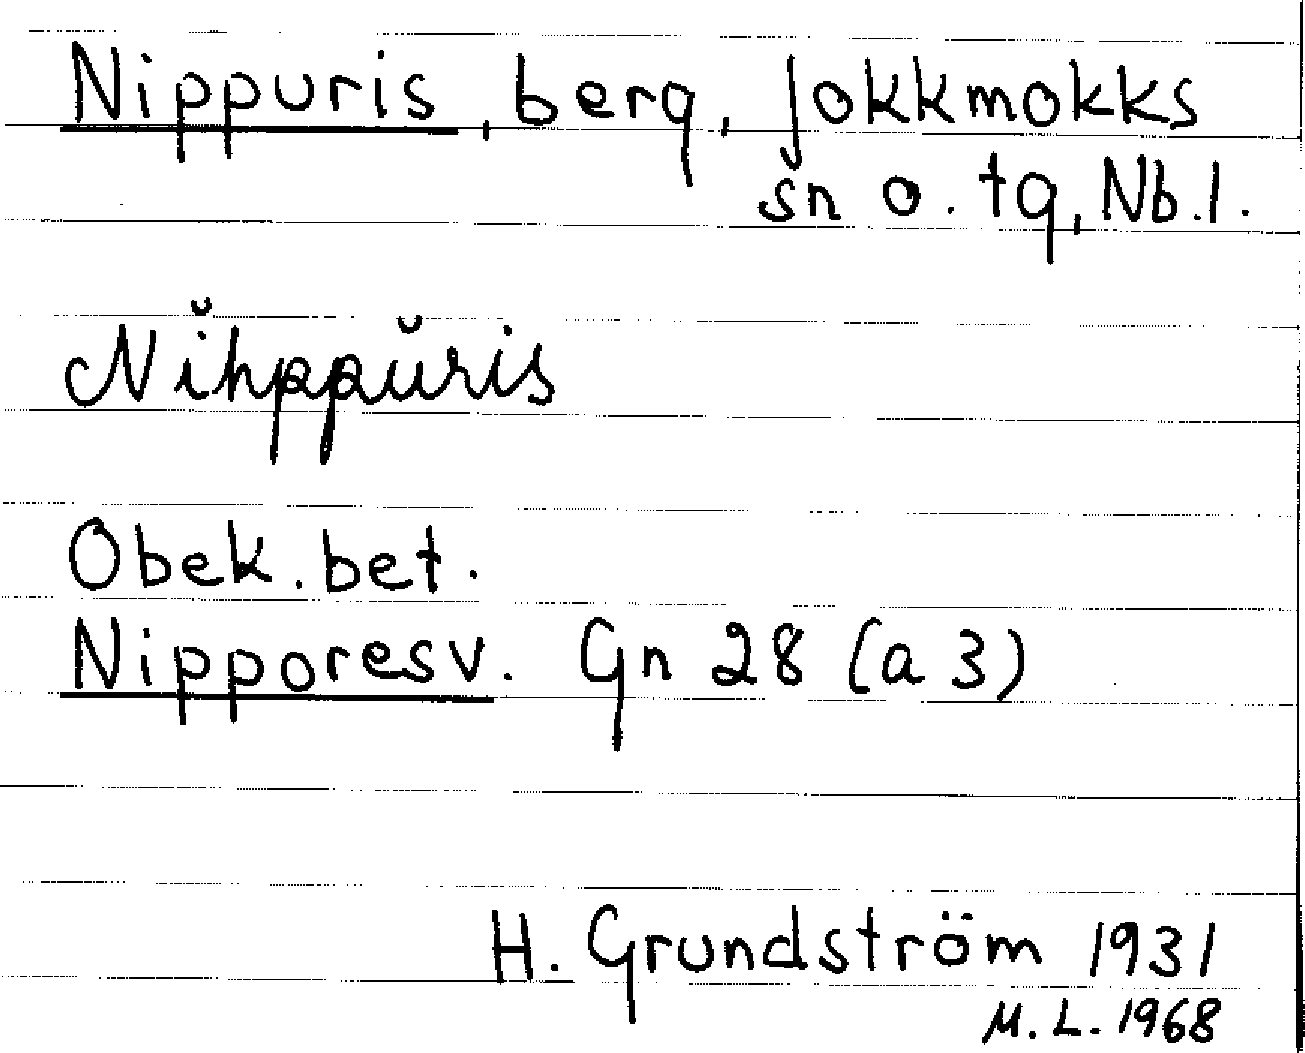 Nippuris, berg, Jokkmokks
sn o. tg, Nb.l.
Nĭhppŭris
Obek. bet.
Nipporesv. Gn 28 (a 3)
H. Grundström 1931
M. L. 1968